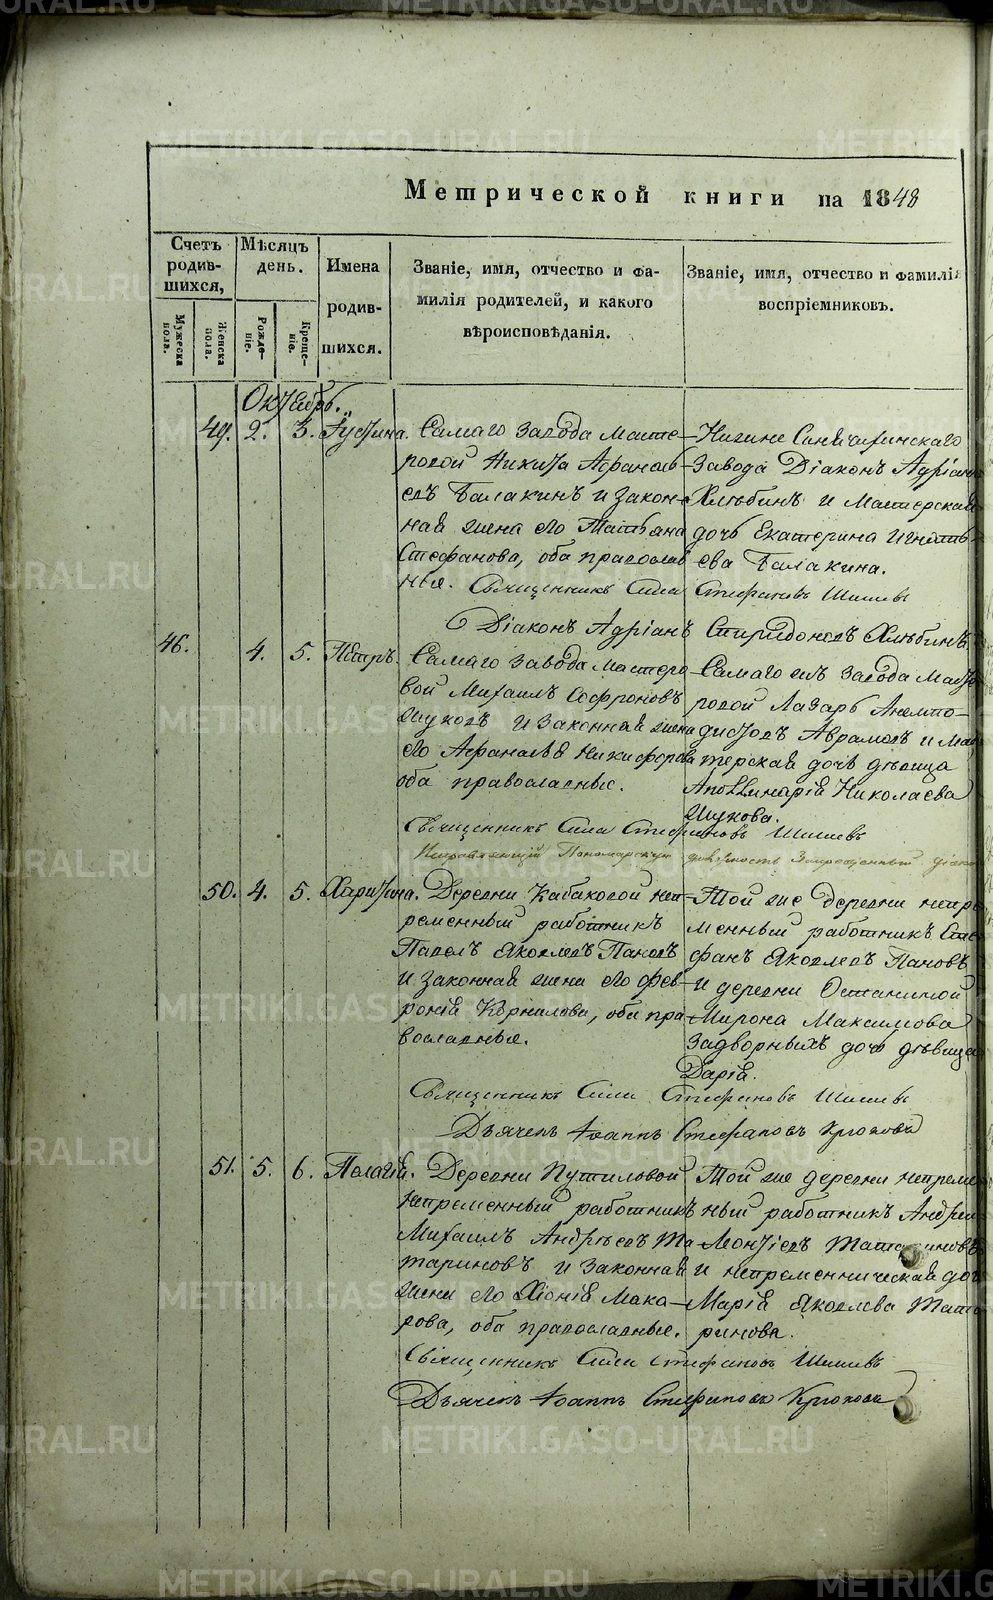 Метрической книги на 1848
Счетъ родившихся,
Мѣсяцъ день.
Имена родившихся.
Званіе, имя, отчество и фамилія родителей, и какого вѣроисповѣданія.
Званіе, имя, отчество и фамилія воспріемниковъ.
Мужеска пола.
Женска пола.
Рожденіе.
Крещеніе.
Октябрь.
49. 2. 3. Іустина.
Самаго завода Масте-
ровой Никита Афанась-
евъ Балакинъ и закон-
ная жена его Татьяна
Стефанова, оба православ
ныя.
Нижне Санячинскаго
Завода Діаконъ Адріанъ
Хлѣбинъ и Мастерская
дочь Екатерина Игнать-
ева Балакина.
Священникъ Сила Стефановъ Шишевъ
Діаконъ Адріанъ Спиридоновъ Хлѣбинъ
46. 4. 5. Петръ.
Самаго завода Мастеро
вой Михаилъ Софроновъ
Жуковъ и законная жена
его Афанасья Никифорова
оба православные.
Самаго жъ завода Масте
ровой Лазарь
Аврамовъ и Мас
терская дочь дѣвица
Аполлинарія Николаева
Жукова.
Священникъ Сила Стефановъ Шишевъ
Исправляющій Пономарскую должность Запрещенный діако
50. 4. 5. Харитина.
Деревни Кабаковой неп-
ременный работникъ
Павелъ Яковлевъ Пановъ
и законная жена его Фев-
ронія Корнилова, оба пра
вославные.
Той же деревни непре
менный работникъ Сте
фанъ Яковлевъ Пановъ
и деревни Останиной
Мирона Максимова
Задворныхъ дочь дѣвица
Дарія.
Священникъ Сила Стефановъ Шишевъ
Дьячекъ Іоаннъ Стефановъ Крюковъ
51. 5. 6. Пелагія.
Деревни Путиловой
непременный работникъ
Михаилъ Андреевъ Та-
тариновъ и законная
жена его Хіонія Мака-
рова, оба православные.
Той же деревни непреме
ный работникъ Андрей
Леонтіевъ Татариновъ
и непременническая доч
Марія Яковлева Тата
ринова.
Священникъ Сила Стефановъ Шишевъ
Дьячекъ Іоаннъ Стефановъ Крюковъ
METRIKI.GASO-URAL.RU